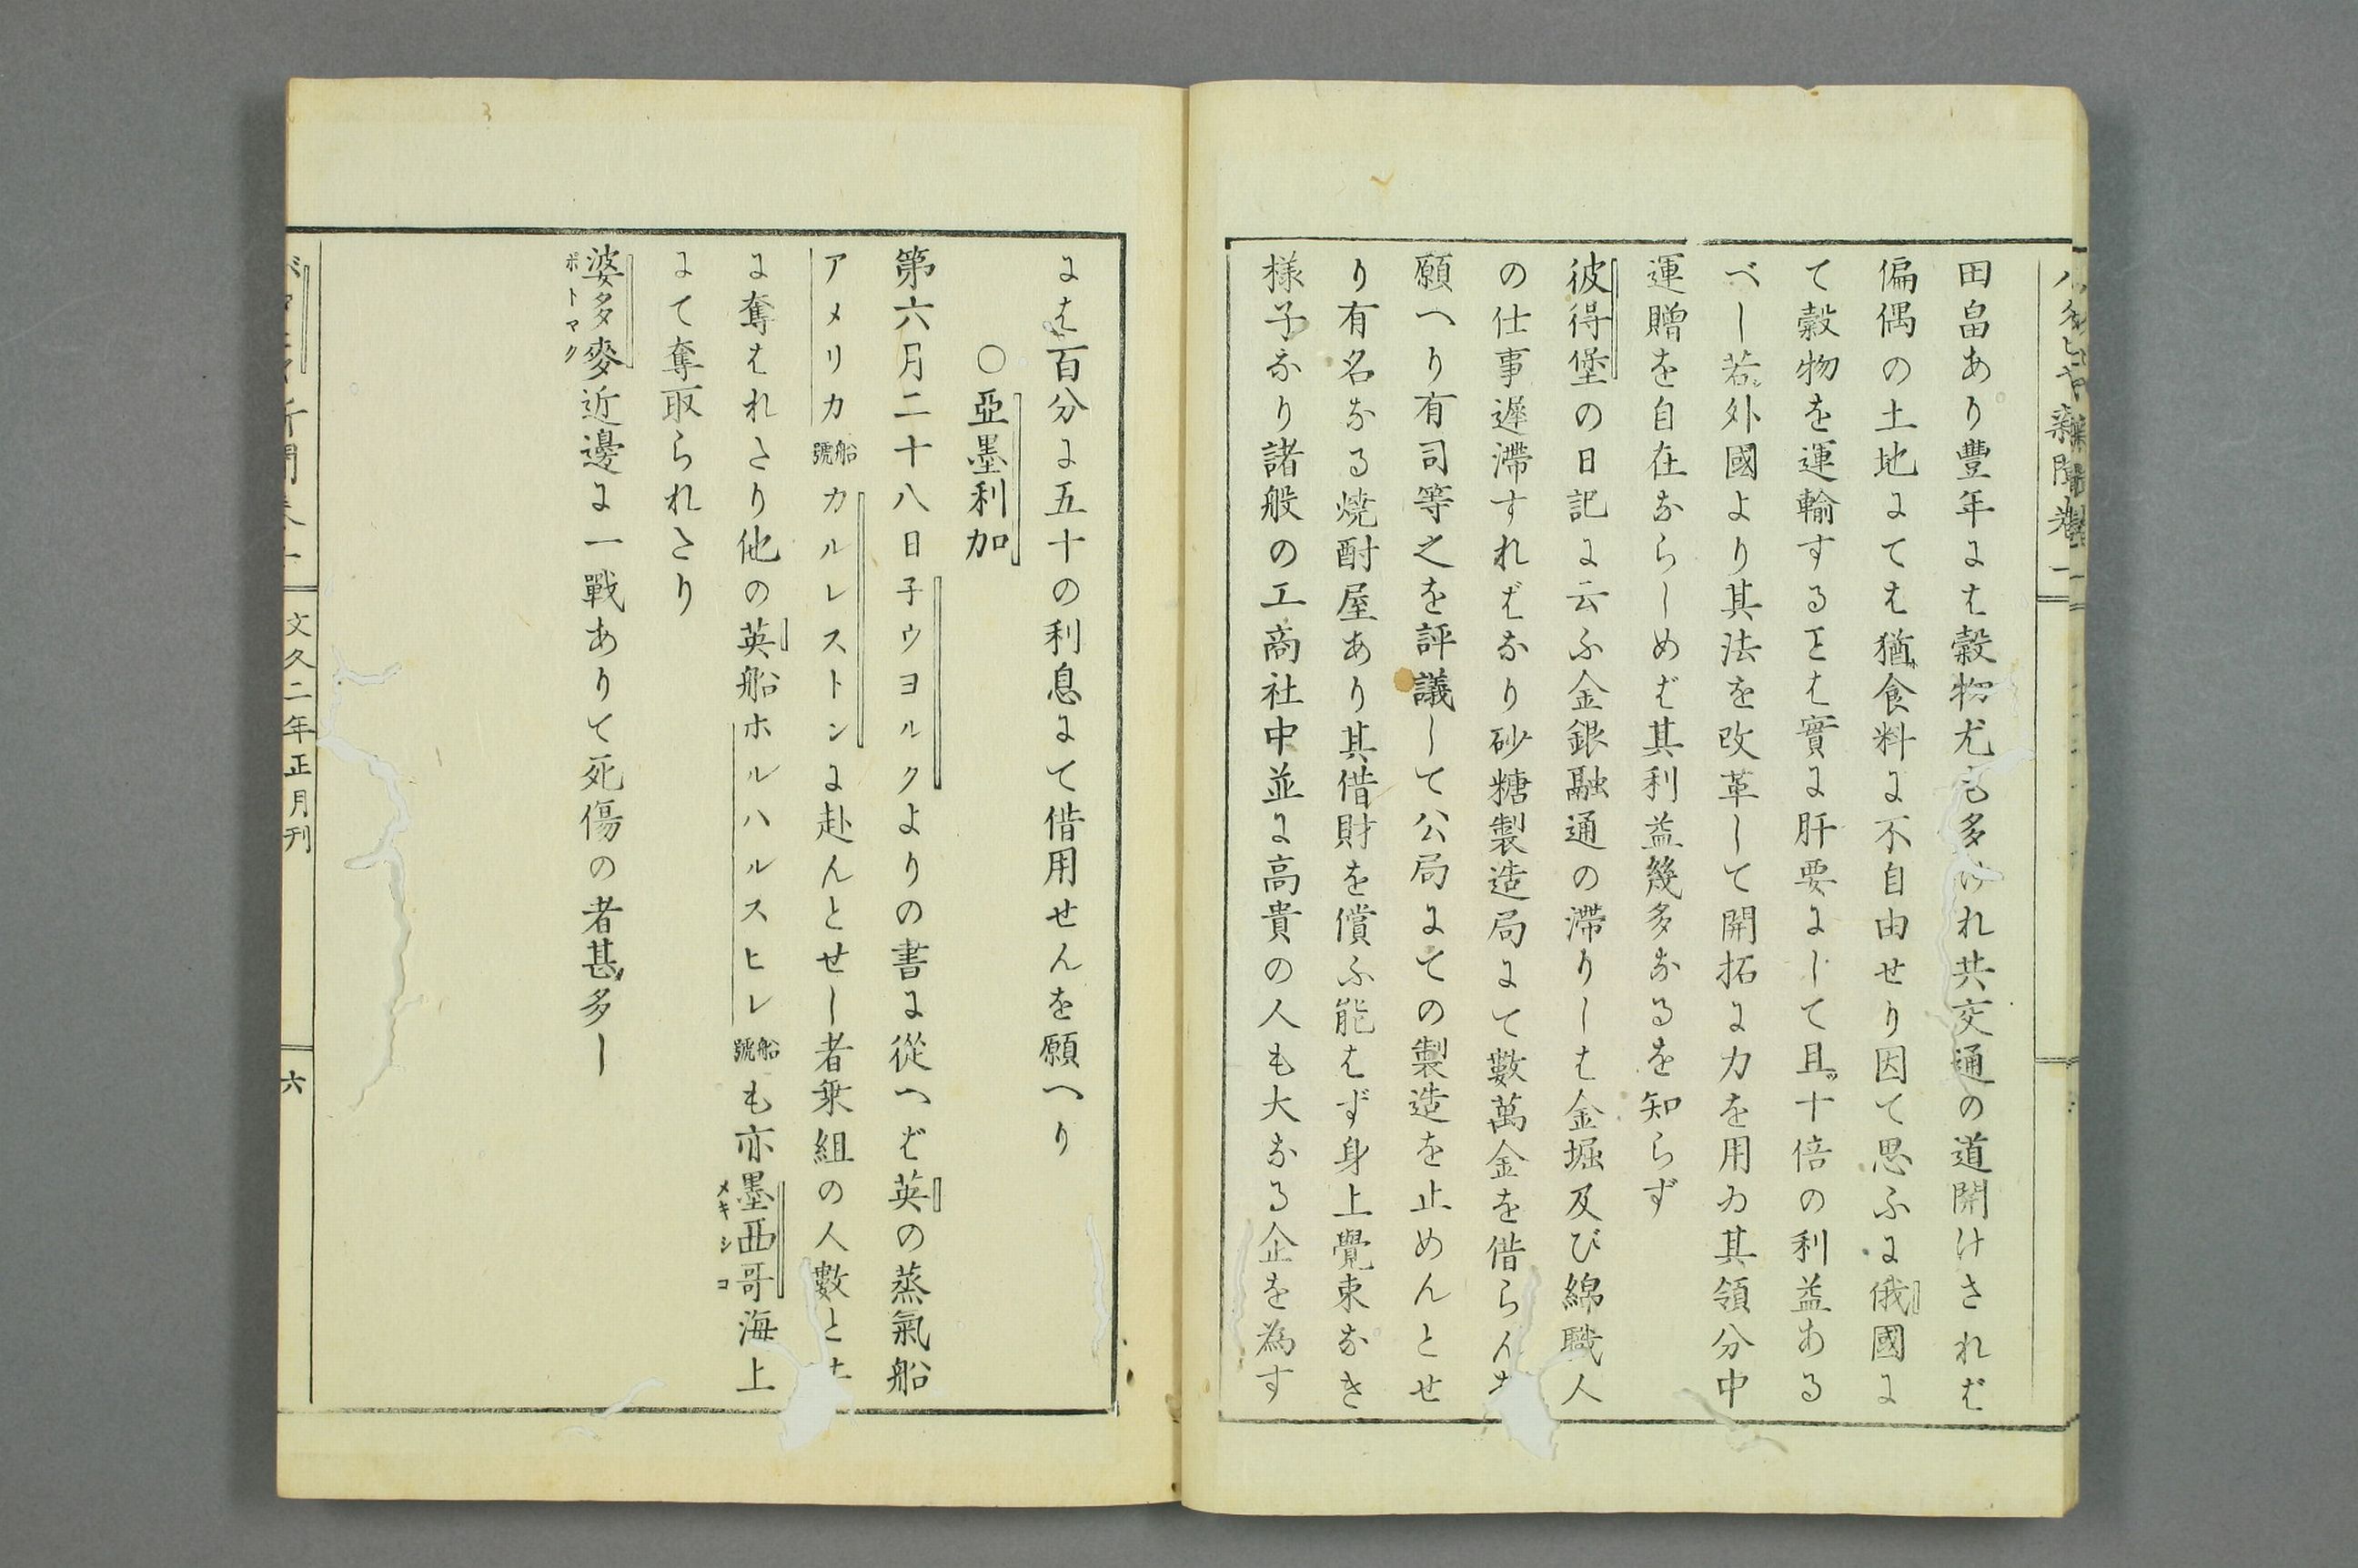 田畠あり豐年には穀物尤も多けれ共交通の道開けざれば
偏偶の土地にては猶食料に不自由せり因て思ふに俄國に
て穀物を運輸することは實に肝要にして且十倍の利益ある
べし若外國より其法を改革して開拓に力を用ゐ其領分中
運贈を自在ならしめば其利益幾多なるを知らず
彼得堡の日記に云ふ金銀融通の滯りしは金堀及び綿職人
の仕事遲滯すればなり砂糖製造局にて數萬金を借らん
願へり有司等之を評議して公局にての製造を止めんとせ
り有名なる焼酎屋あり其借財を償ふ能はず身上覺束なき
樣子なり諸般の工商社中並に高貴の人も大なる企を為す
には百分に五十の利息にて借用せんを願へり
〇亞墨利加
第六月二十八日子ウヨルクよりの書に從へば英の蒸氣船
アメリカ船號カルレストンに赴んとせし者乗組の人數と
に奪はれたり他の英船ホルハルスヒレ船號も亦墨西哥メキシコ海上
にて奪取られたり
婆多麥ポトマク近邊に一戰ありて死傷の者甚多し
文久二年正月刊
六